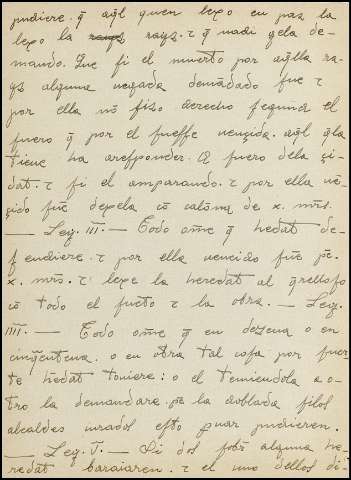 pudiere. q̄ aq̄l quien lexo en paz la
lexo la rayz. τ q̄ nadi gela de-
mando. Que si el muerto por aq̄lla ra-
yz alguna uegada demādado fue τ
por ella nō fizo derecho segund el
fuero q̄ por el fuesse uençida. aq̄l q̄ la
tiene ha a responder. A fuero dela çi-
dat. τ si el amparando. τ por ella uē-
çido fuē dexela cō calōna de x. mr̄s.
— Ley. III. — Todo om̄e q̄ hedat de-
fendiere. τ por ella uencido fuē pē.
x. mr̄s. τ lexe la heredat al q̄relloso
cō todo el fructo τ la obra. — Ley.
IIII. — Todo om̄e q̄ en dezena o en
cinq̄entena. o en otra tal cosa por fuer-
te hedat touiere: o el temiendola a o-
tro la demandare. pē la doblada si los
alcaldes iurados esto puar pudieren.
— Ley. V. — Si dos sobr̄ alguna he-
redat baraiaren. τ el uno dellos di-